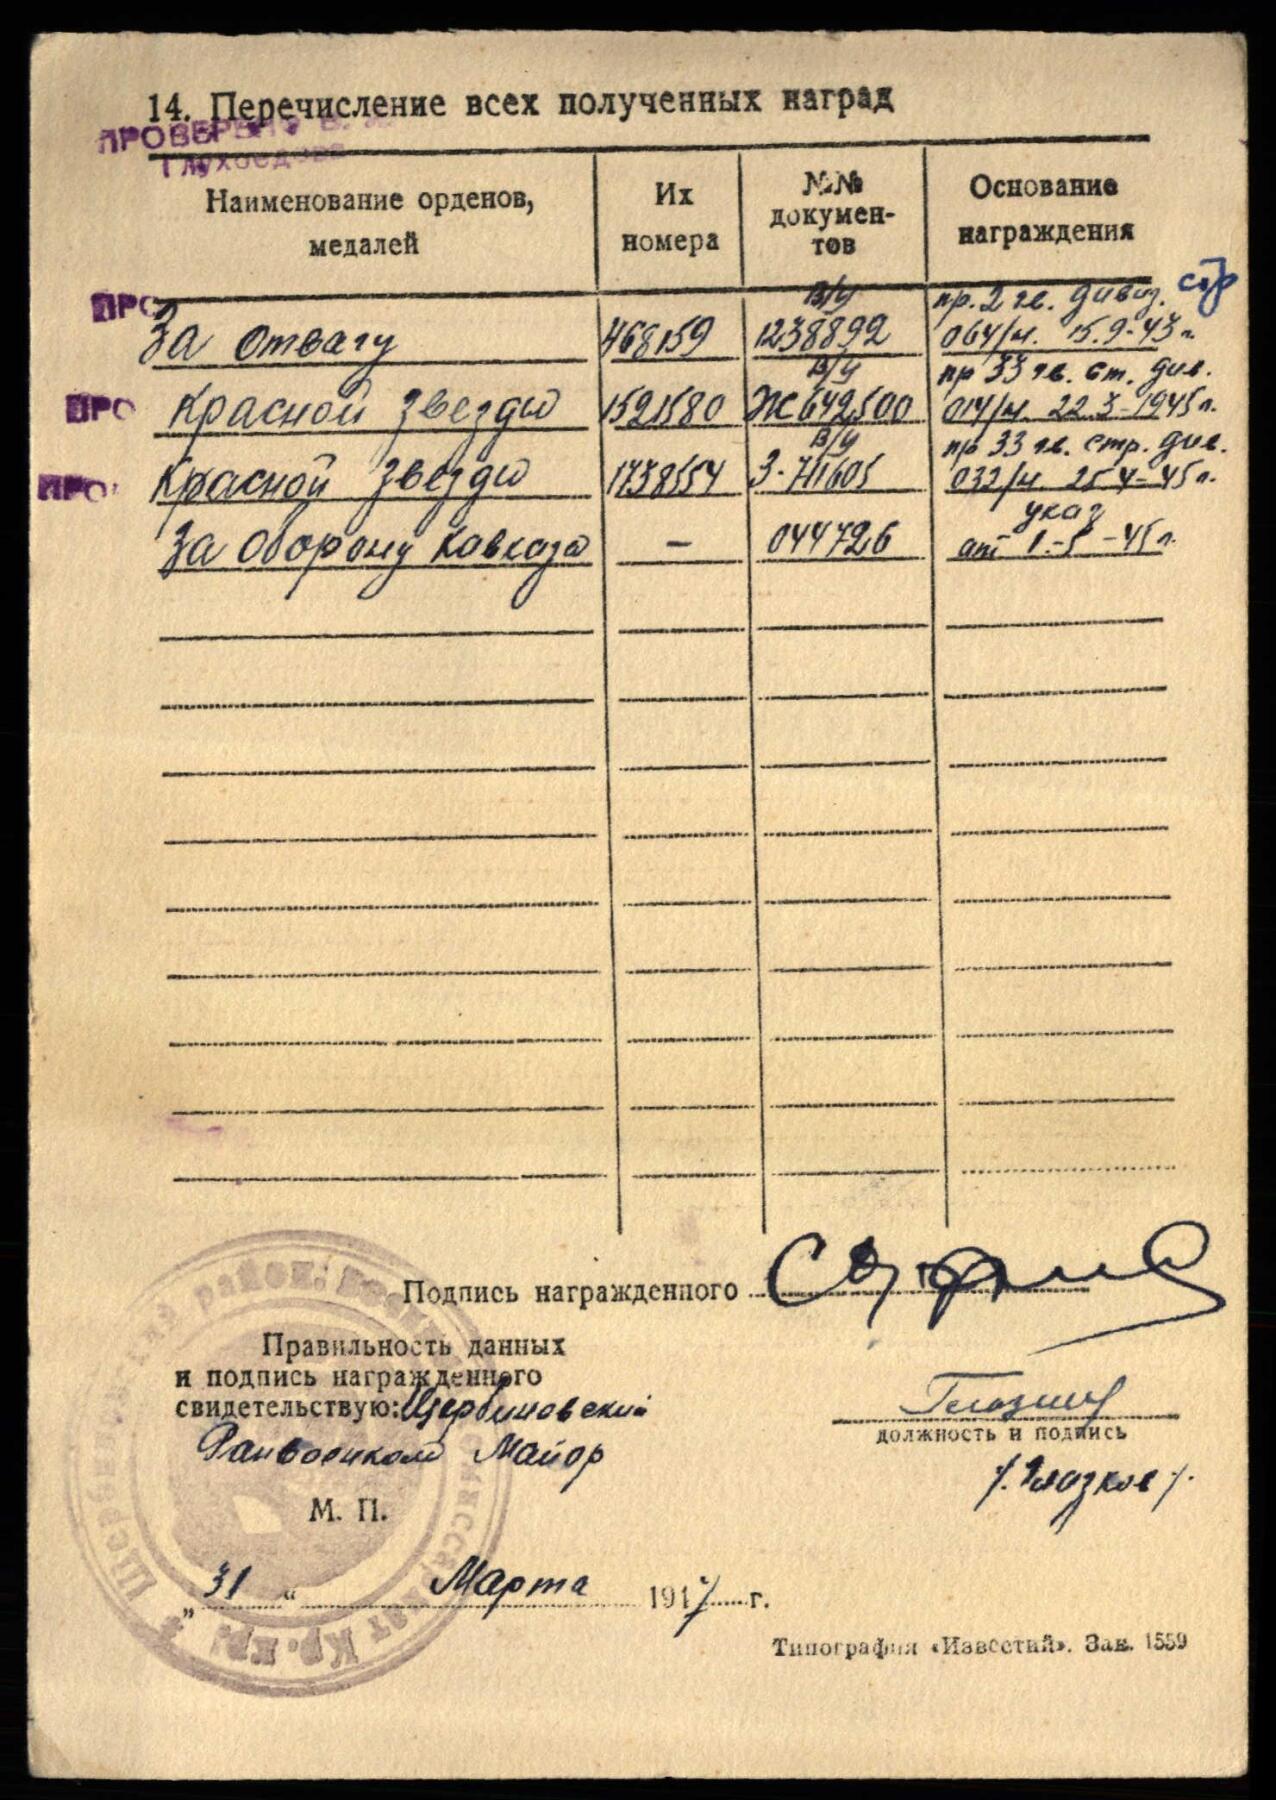 14. Перечисление всех полученных наград
ПРОВЕРЕНО
Глухоедова
Наименование орденов, медалей
Их номера
№№ документов
Основание награждения
ПРО
За отвагу 468159 в/у 1238892 пр. 2 гв. дивиз. стр 064/н. 15.9-43 г.
ПРО
Красной звезды 1521580 в/у Ж 642500 пр 33 гв. ст. див. 014/н. 22.3-1945 г.
ПРО
Красной звезды 1738554 в/у З-711605 пр 33 гв. стр. див. 032/н 25 4-45 г.
За оборону Кавказа – 044726 указ от 1.-5-45 г.
Подпись награжденного
Правильность данных
и подпись награжденного
свидетельствую: Щербиновский
Райвоенком Майор
должность и подпись
/. Глазков /.
М. П.
„31“ Марта 1947 г.
Типография «Известий». Зак. 1559